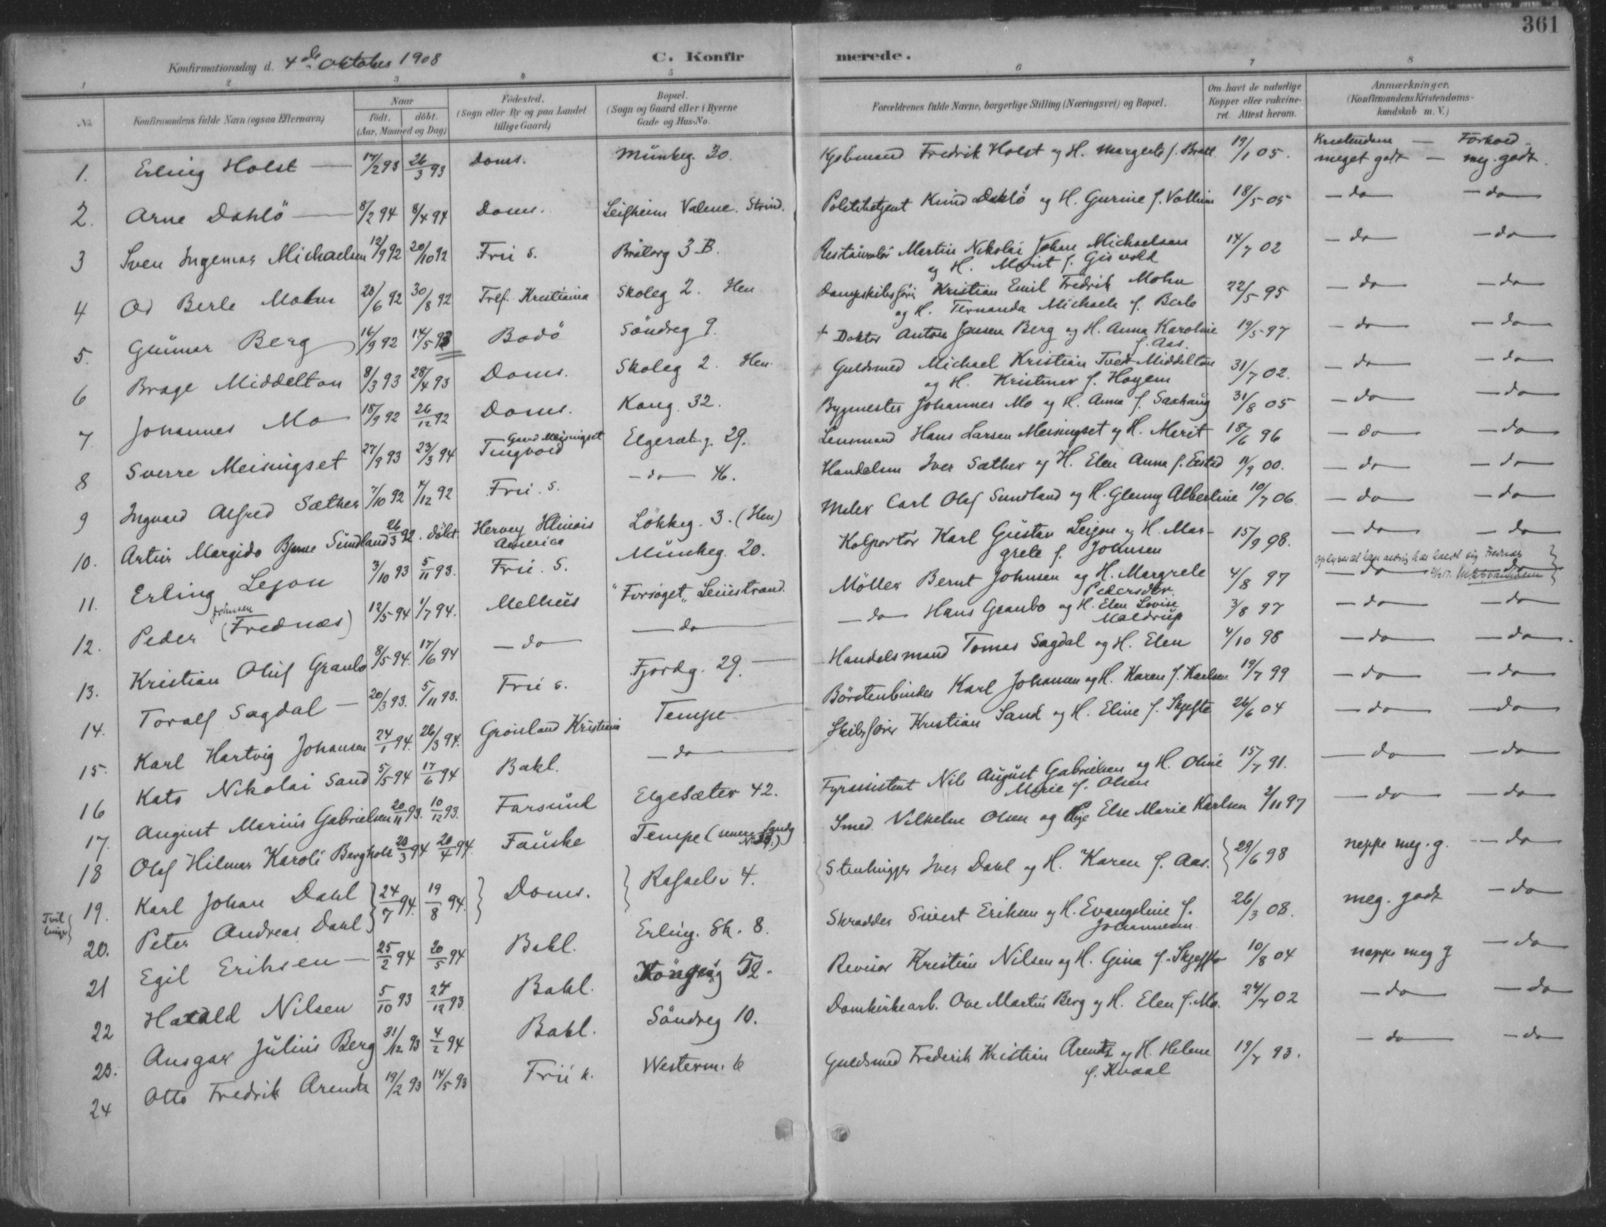 361
Konfirmationsdag d. 4de Oktober 1908
C. Konfirmerede.
1 2 3 4 5 6 7 8
No. Konfirmandens fulde Navn (ogsaa Efternavn) Naar født. døbt. (Aar, Maaned og Dag) Fødested. (Sogn eller By og paa Landet tillige Gaard) Bopæl. (Sogn og Gaard eller i Byerne Gade og Hus-No. Forældrenes fulde Navne, borgerlige Stilling (Næringsvei) og Bopæl. Om havt de naturlige Kopper eller vakcineret. Attest herom. Anmærkninger. (Konfirmandens Kristendomskundskab m. V.)
Kristendom — Forhold
1. Erling Holst 17/2 93 26/3 93 Doms. Munkeg. 20. Kjøbmand Fredrik Holst og H. Margrete f. Bratt 19/1 05. meget godt — meg. godt.
2. Arne Dahlö 8/2 94 8/4 94 Doms. Leifheim Valene. Strind. Politibetjent Knud Dahlö og H. Gurine f. Vollum 18/5 05 — do — — do —
3 Sven Ingemar Michaelsen 12/9 92 20/10 92 Frue s. Bratörg 3 B. Restauratör Martin Nikolai Johan Michaelsen og H. Marit f. Gisvold 14/7 02 — do — — do —
4 Od Berle Mohn 23/6 92 30/8 92 Tref. Kristiania Skoleg 2. Hen Dampskibsfører Kristian Emil Fredrik Mohn og H. Fernanda Michaele f. Berle 22/5 95 — do — — do —
5. Gunnar Berg 16/9 92 14/5 93 Bodö Söndreg 9. + Doktor Anton Jansen Berg og H. Anna Karoline f. Aas. 19/5 97 — do — — do —
6 Brage Middelton 8/3 93 28/4 93 Doms. Skoleg 2. Hen + Guldsmed Michael Kristian Fred. Middelton og H. Kristine f. Hoyem 31/7 02. — do — — do —
7 Johannes Mo 18/9 92 26/12 92 Doms. Kong. 32. Bygmester Johannes Mo og H. Anna f. Saxhaug 31/8 05 — do — — do —
8 Sverre Meisingset 27/9 93 23/3 94 Gaard Meisingset Tingvold Elgesæterg. 29. Lensmand Hans Larsen Meisingset og H. Merit 18/6 96 — do — — do —
9 Ingvard Alfred Sæther 7/10 92 4/12 92 Frue. s. — do — 46. Handelsm Iver Sæther og H. Elen Anna f. Eested 11/9 00. — do — — do —
10. Artur Margido Bjarne Sundland 26/3 92. döbt. Hervey Illinois America Lökkeg. 3. (Hen) Meler Carl Olaf Sundland og H. Glenny Albertine 10/7 06 — do — — do —
11. Erling Lejon 3/10 93 5/11 93. Frue. S. Munkeg. 20. Kolportör Karl Gustav Lejon og H. Margrete f. Johnsen 15/9 98. — do — — do —
12. Peder Johnsen (Frednæs) 12/5 94 1/7 94. Melhus "Forsöget" Leinstrand Möller Bernt Johnsen og H. Margrete Pedersdtr. 4/8 97 — do — — do —
13. Kristian Oluf Granbo 8/5 94 17/6 94 — do — — do — — do — Hans Granbo og H. Elen Lovise Maldrup 3/8 97 — do — — do —
14. Toralf Sagdal 20/3 93. 5/11 93. Frue s. Fjordg. 29. Handelsmand Tomas Sagdal og H. Elen 4/10 98 — do — — do —
15. Karl Hartvig Johansen 24/1 94. 26/3 94. Grönland Kristiania Tempe Börstenbinder Karl Johansen og H. Karen f. Karlsen 19/7 99 — do — — do —
16 Kato Nikolai Sand 5/5 94 17/6 94 Bakl. — do — Skibsfører Kristian Sand og H. Eline f. Skjefte 26/6 04 — do — — do —
17. August Marius Gabrielsen 20/11 93. 10/12 93. Farsund Elgesæter 42. Fyrassistent Nils August Gabrielsen og H. Oline Marie f. Olsen 15/7 91. — do — — do —
18 Olaf Hilmar Karoli Bergholt 20/3 94 20/4 94 Fauske Tempe Smed. Vilhelm Olsen og Else Marie Karlsen 2/11 97 — do — — do —
Tvillinger
19. Karl Johan Dahl } 24/7 94. 19/8 94. } Doms. } Rafaelsv 4. Stenhugger Iver Dahl og H. Karen f. Aas. } 29/6 98 neppe meg. g. — do —
20. Peter Andreas Dahl
21 Egil Eriksen 25/2 94 20/5 94 Bakl. Erling. Sk. 8. Skrædder Sivert Eriksen og H. Evangeline f. Johannesen 26/3 08. meg. godt — do —
22 Harald Nilsen 5/10 93 24/12 93 Bakl. Kongeng 52. Revisor Kristian Nilsen og H. Gina f. Skjefte 10/8 04 neppe meg g — do —
23. Ansgar Julius Berg 31/12 93 4/2 94 Bakl. Söndreg 10. Domkirkearb. Ove Martin Berg og H. Elen f. Mo. 24/7 02 — do — — do —
24 Otto Fredrik Arends 19/2 93 14/5 93 Frue k. Westerm. 6 Guldsmed Frederik Kristian Arends og H. Helene f. Kvaal 19/7 93. — do — — do —